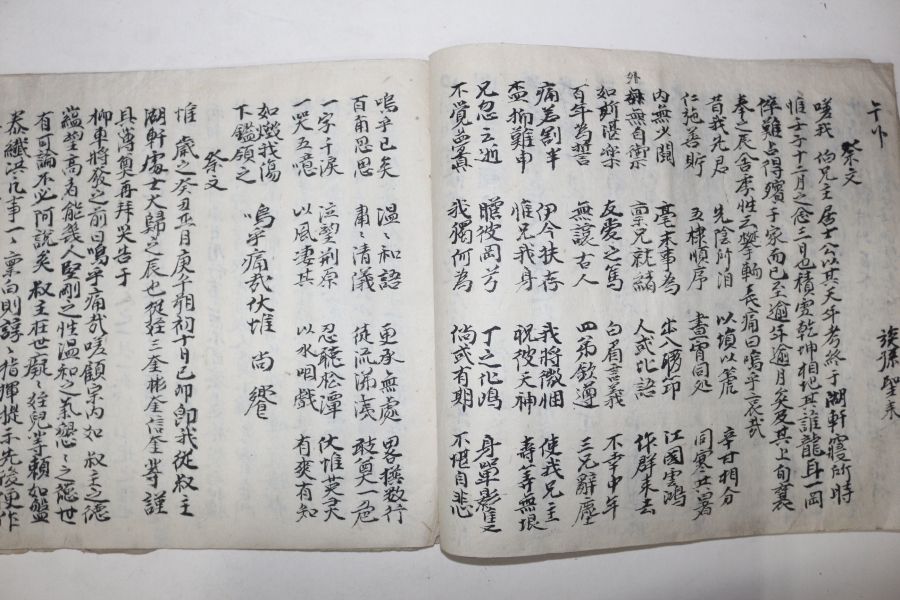 族孫聖来
祭文
嗟我 伯兄主居士公以其天年考終于湖軒寢所時
惟壬子十二月之念三日也積雪乾坤相地甚誰龍耳一岡
倅難占得殯于家而已至逾年逾月癸丑其上旬襄
奉之辰舍季性三攀輀長痛曰嗚乎哀哉
昔我先君 先陰所洎 以塤以篪 辛甘相分
仁施善貯 五棣順序 晝宵同処 同寒共暑
内無少閱 亳末事為 出入勝節 江國雲鴻
外無自崇 稟兄就緒 人或比語 作群来去
如斯湛樂 友愛之篤 白眉言義 不幸中年
百年為誓 無讓古人 四弟欽遵 三兄辭塵
痛若割半 伊今扶存 我將微悃 使我兄主
盃楊難申 惟兄我身 祝彼天神 壽等無垠
兄忽云逝 瞻彼岡兮 丁之化鳴 身單影隻
不覺夢寡 我獨何為 倘或有期 不堪自悲
嗚乎已矣 溫溫和語 更承無處 畧搆數行
百爾思思 肅肅清儀 徒流涕淚 敢奠一巵
一字千淚 泣望荊原 忍聽松潭 伏惟莫天
一哭五噫 以風凄其 以水咽戲 有爽有知
如燬我傷 嗚乎痛哉伏惟 尚饗
下鑑領之
祭文
惟 歲之癸丑正月庚午朔初十日己卯卽我從叔主
湖軒處士大歸之辰也從姪三奎彬奎信奎等謹
具薄奠再拜哭告于
柳車將發之前曰嗚乎痛哉嗟顧宗內如 叔主之德
蘊望高者能幾人堅剛之性溫和之氣懇懇之德世
有可論不必阿說矣 叔主在世癡癡姪兒等賴如盤
泰纖洪凡事一一稟白則諄諄指揮從示先後便作